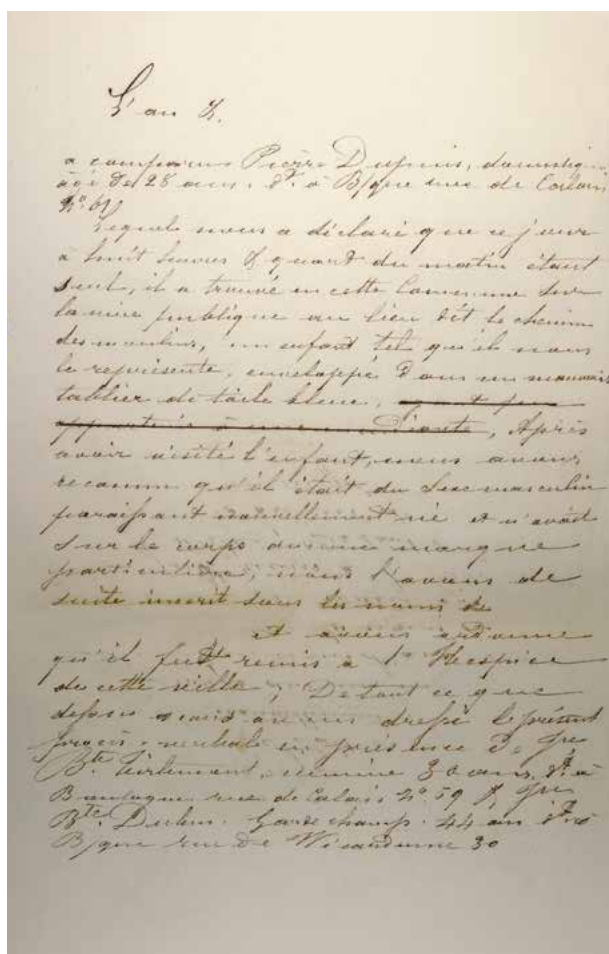 L'an &.
a comparu Pierre Dupuis, domestique
âgé de 28 ans. dt. à B/gne rue de Calais
No. 61
Lequel nous a déclaré que ce jour
à huit heures & quart du matin étant
seul, il a trouvé en cette Commune sur
la voie publique au lieu dit le chemin
des moulins, un enfant tel qu'il nous
le représente, enveloppé dans un mauvais
tablier de toile bleue, ayant peu
appartenir à une mendiante, Après
avoir visité l'enfant, nous avons
reconnu qu'il était du sexe masculin
paraissant nouvellement né et n'avait
sur le corps aucune marque
particulière, nous l'avons de
suite inscrit sous les noms de
et avons ordonné
qu'il fut remis à l'Hospice
de cette ville, De tout ce que
dessus nous avons dressé le présent
procès-verbale en présence de
Bte. 30 ans, dt. à
Boulogne rue de Calais No. 59 &
Bte. Garde champ. 44 an dt. à
B/gne rue de 30